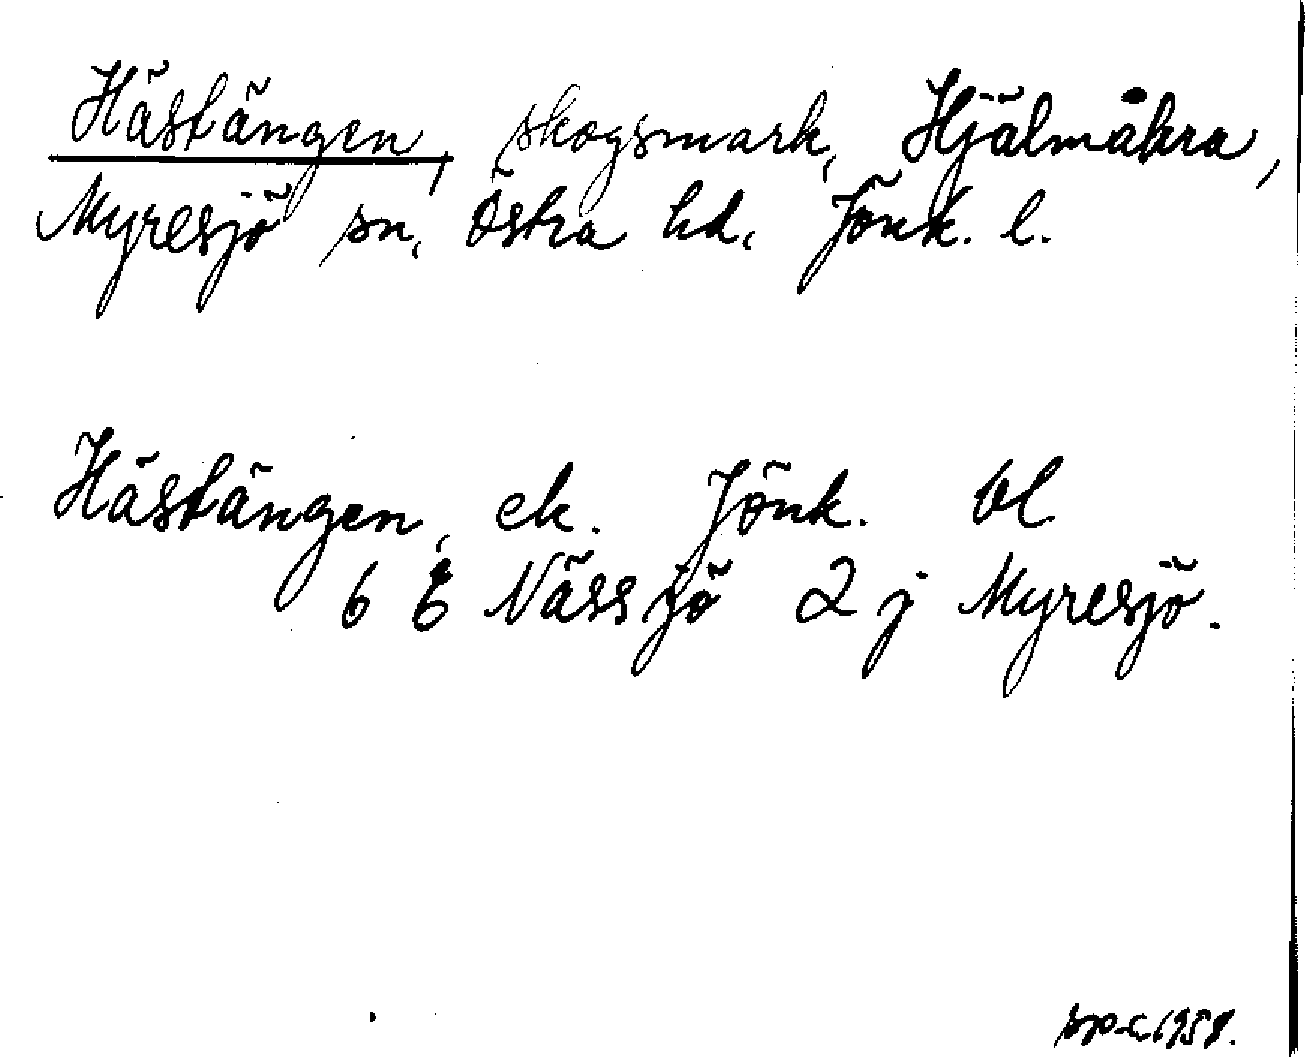 Hästängen, skogsmark, Hjälmåkra,
Myresjö sn, Östra hd, Jönk. l.
Hästängen, ek. Jönk. bl
6 E Nässjö 2 j Myresjö.
1958.